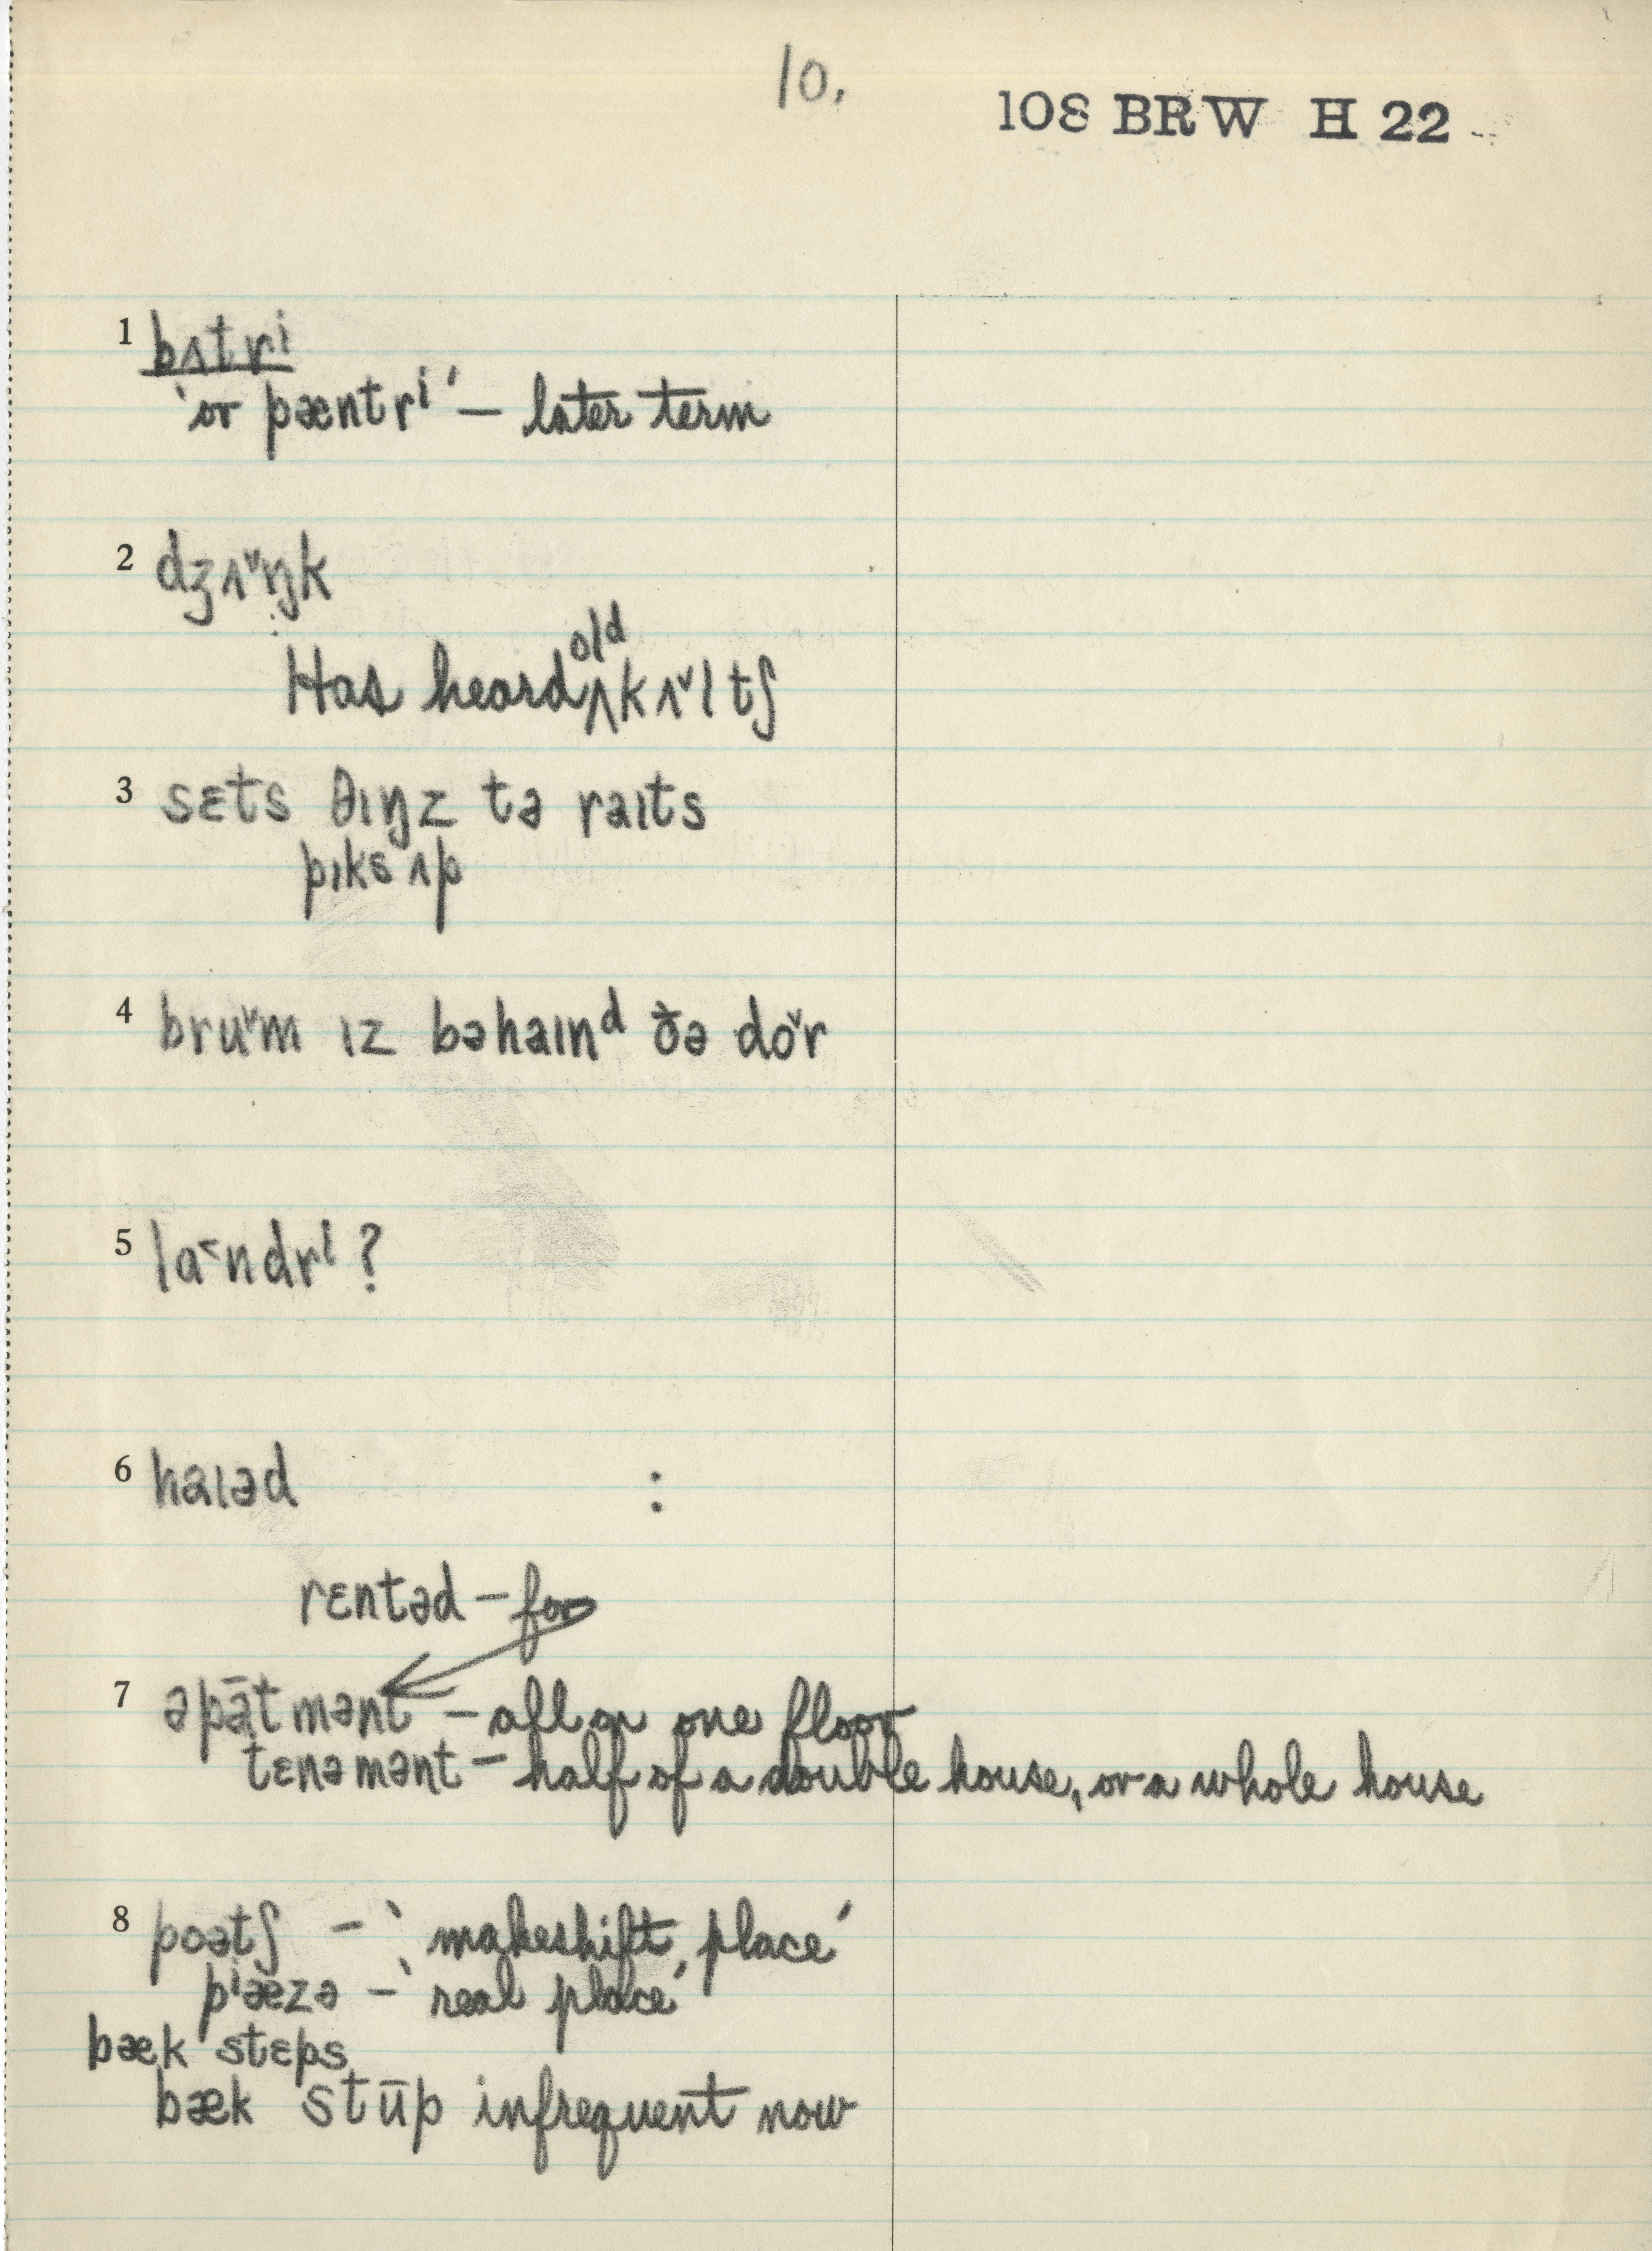 10.
108 BRW H 22
1 bʌtrⁱ
'or pæntrⁱ' – later term
2 dʒʌ˅ŋk
old
Has heard ʌ kʌ˅ltʃ
3 sɛts θɪŋz tə raɪts
pɪks ʌp
4 bru˅m ɪz bəhaɪnᵈ ðə do˅r
5 la˂ndrⁱ ?
6 haɪəd :
rɛntəd – for
7 əpāt mənt – all on one floor
tɛnə mənt – half of a double house, or a whole house
8 poətʃ – 'makeshift place'
pⁱæzə – 'real place'
bæk stɛps
bæk stūp infrequent now